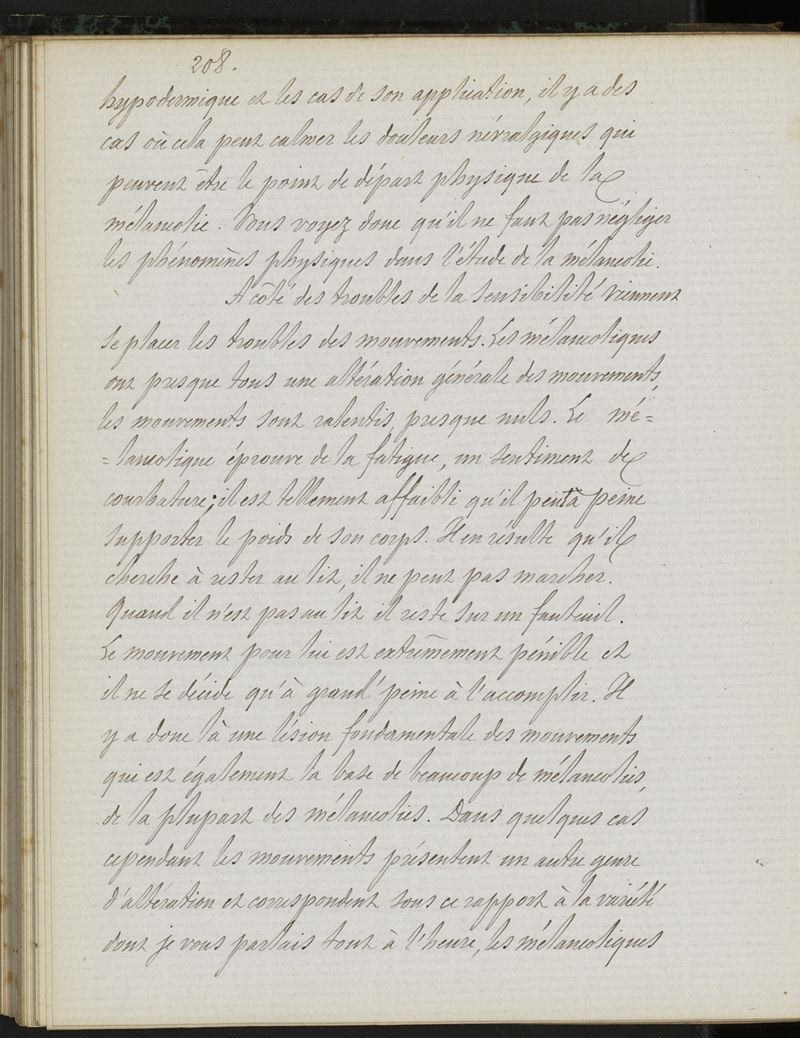 208.
hypodermique et les cas de son application, il y a des
cas où cela peut calmer les douleurs névralgiques qui
peuvent être le point de départ physique de la
mélancolie. Vous voyez donc qu'il ne faut pas négliger
les phénomènes physiques dans l'étude de la mélancolie.
A côté des troubles de la sensibilité viennent
se placer les troubles des mouvements. Les mélancoliques
ont presque tous une altération générale des mouvements,
les mouvements sont ralentis, presque nuls. Le mé=
=lancolique éprouve de la fatigue, un sentiment de
courbature; il est tellement affaibli qu'il peut à peine
supporter le poids de son corps. Il en resulte qu'il
cherche à rester au lit, il ne peut pas marcher.
Quand il n'est pas au lit il reste sur un fauteuil.
Le mouvement pour lui est extrêmement pénible et
il ne se décide qu'à grand' peine à l'accomplir. Il
y a donc là une lésion fondamentale des mouvements
qui est également la base de beaucoup de mélancolies,
de la plupart des mélancolies. Dans quelques cas
cependant les mouvements présentent un autre genre
d'altération et correspondent sous ce rapport à la variété
dont je vous parlais tout à l'heure, les mélancoliques